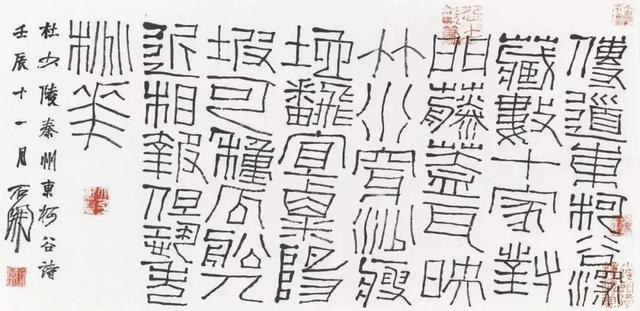 傳道東柯谷深
藏數十家對
門藤蓋瓦映
竹水穿沙瘦
地飜宜粟陽
坡可種瓜船人
近相報但恐失
桃花
杜少陵秦州東柯谷詩
壬辰十一月石開